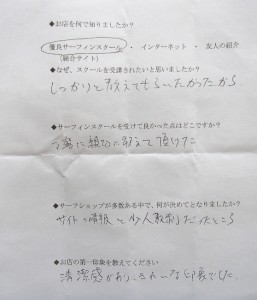 ◆お店を何で知りましたか？
優良サーフィンスクール ・ インターネット ・ 友人の紹介
（総合サイト）
◆なぜ、スクールを受講されたいと思いましたか？
しっかりと教えてもらいたかったから
◆サーフィンスクールを受けて良かった点はどこですか？
丁寧に親切に教えて頂けた
◆サーフショップが多数ある中で、何が決めてとなりましたか？
サイトの情報と少人数制だったところ
◆お店の第一印象を教えてください
清潔感があり、きれいな印象でした。